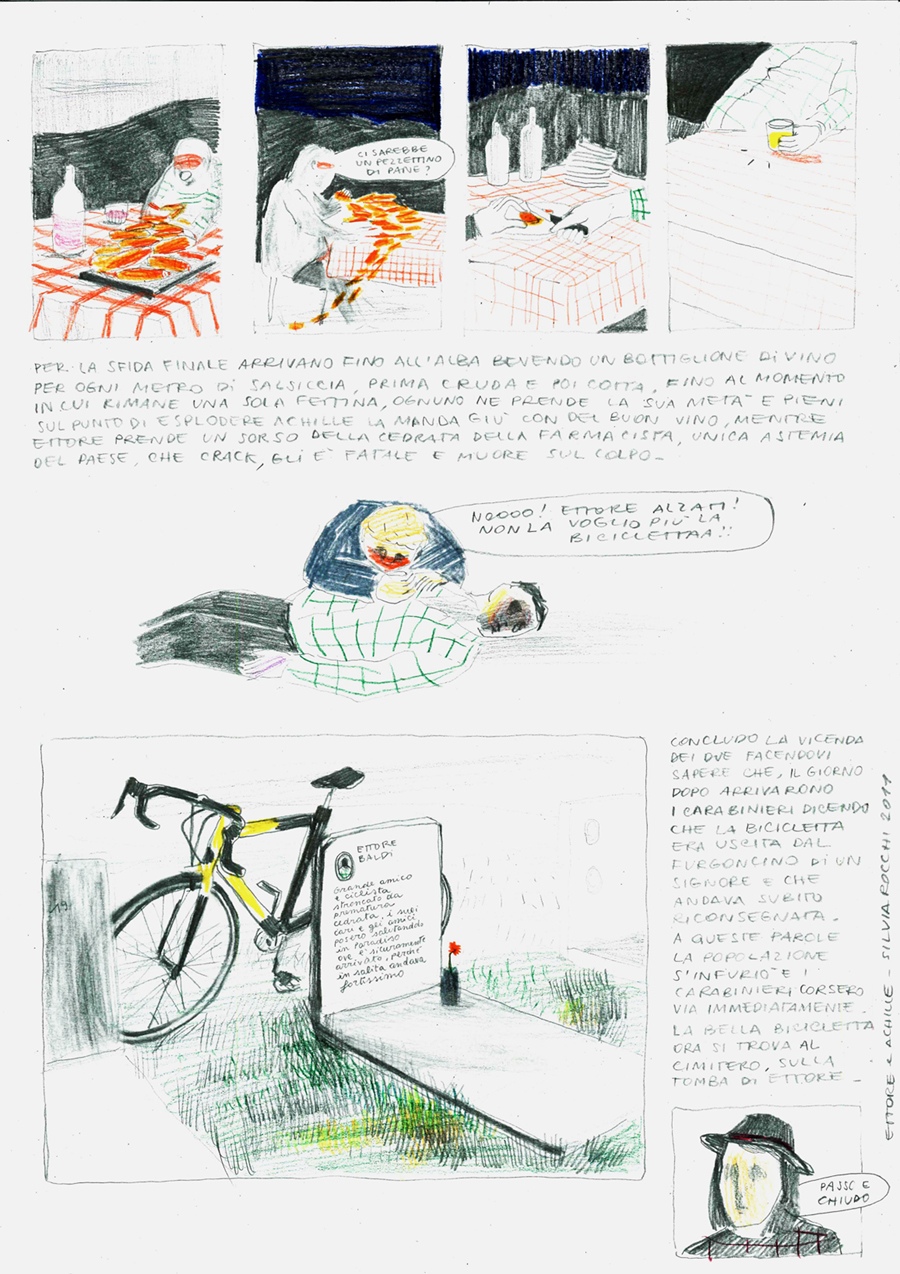 CI SAREBBE
UN PEZZETTINO
DI PANE?
PER LA SFIDA FINALE ARRIVANO FINO ALL'ALBA BEVENDO UN BOTTIGLIONE DI VINO
PER OGNI METRO DI SALSICCIA, PRIMA CRUDA E POI COTTA, FINO AL MOMENTO
IN CUI RIMANE UNA SOLA FETTINA, OGNUNO NE PRENDE LA SUA METÀ E PIENI
SUL PUNTO DI ESPLODERE ACHILLE LA MANDA GIÙ CON DEL BUON VINO, MENTRE
ETTORE PRENDE UN SORSO DELLA CEDRATA DELLA FARMACISTA, UNICA ASTEMIA
DEL PAESE, CHE CRACK, GLI È FATALE E MUORE SUL COLPO_
NOOOO! ETTORE ALZATI!
NON LA VOGLIO PIÙ LA
BICICLETTAA!!
ETTORE
BALDI
Grande amico
e ciclista
stroncato da
prematura
cedrata, i suoi
cari e gli amici
posero salutandolo
in Paradiso
ove è sicuramente
arrivato, perché
in salita andava
fortissimo
191
CONCLUDO LA VICENDA
DEI DUE FACENDOVI
SAPERE CHE, IL GIORNO
DOPO ARRIVARONO
I CARABINIERI DICENDO
CHE LA BICICLETTA
ERA USCITA DAL
FURGONCINO DI UN
SIGNORE E CHE
ANDAVA SUBITO
RICONSEGNATA.
A QUESTE PAROLE
LA POPOLAZIONE
S'INFURIÒ E I
CARABINIERI CORSERO
VIA IMMEDIATAMENTE.
LA BELLA BICICLETTA
ORA SI TROVA AL
CIMITERO, SULLA
TOMBA DI ETTORE_
PASSO E
CHIUDO
ETTORE E ACHILLE - SILVIA ROCCHI 2011